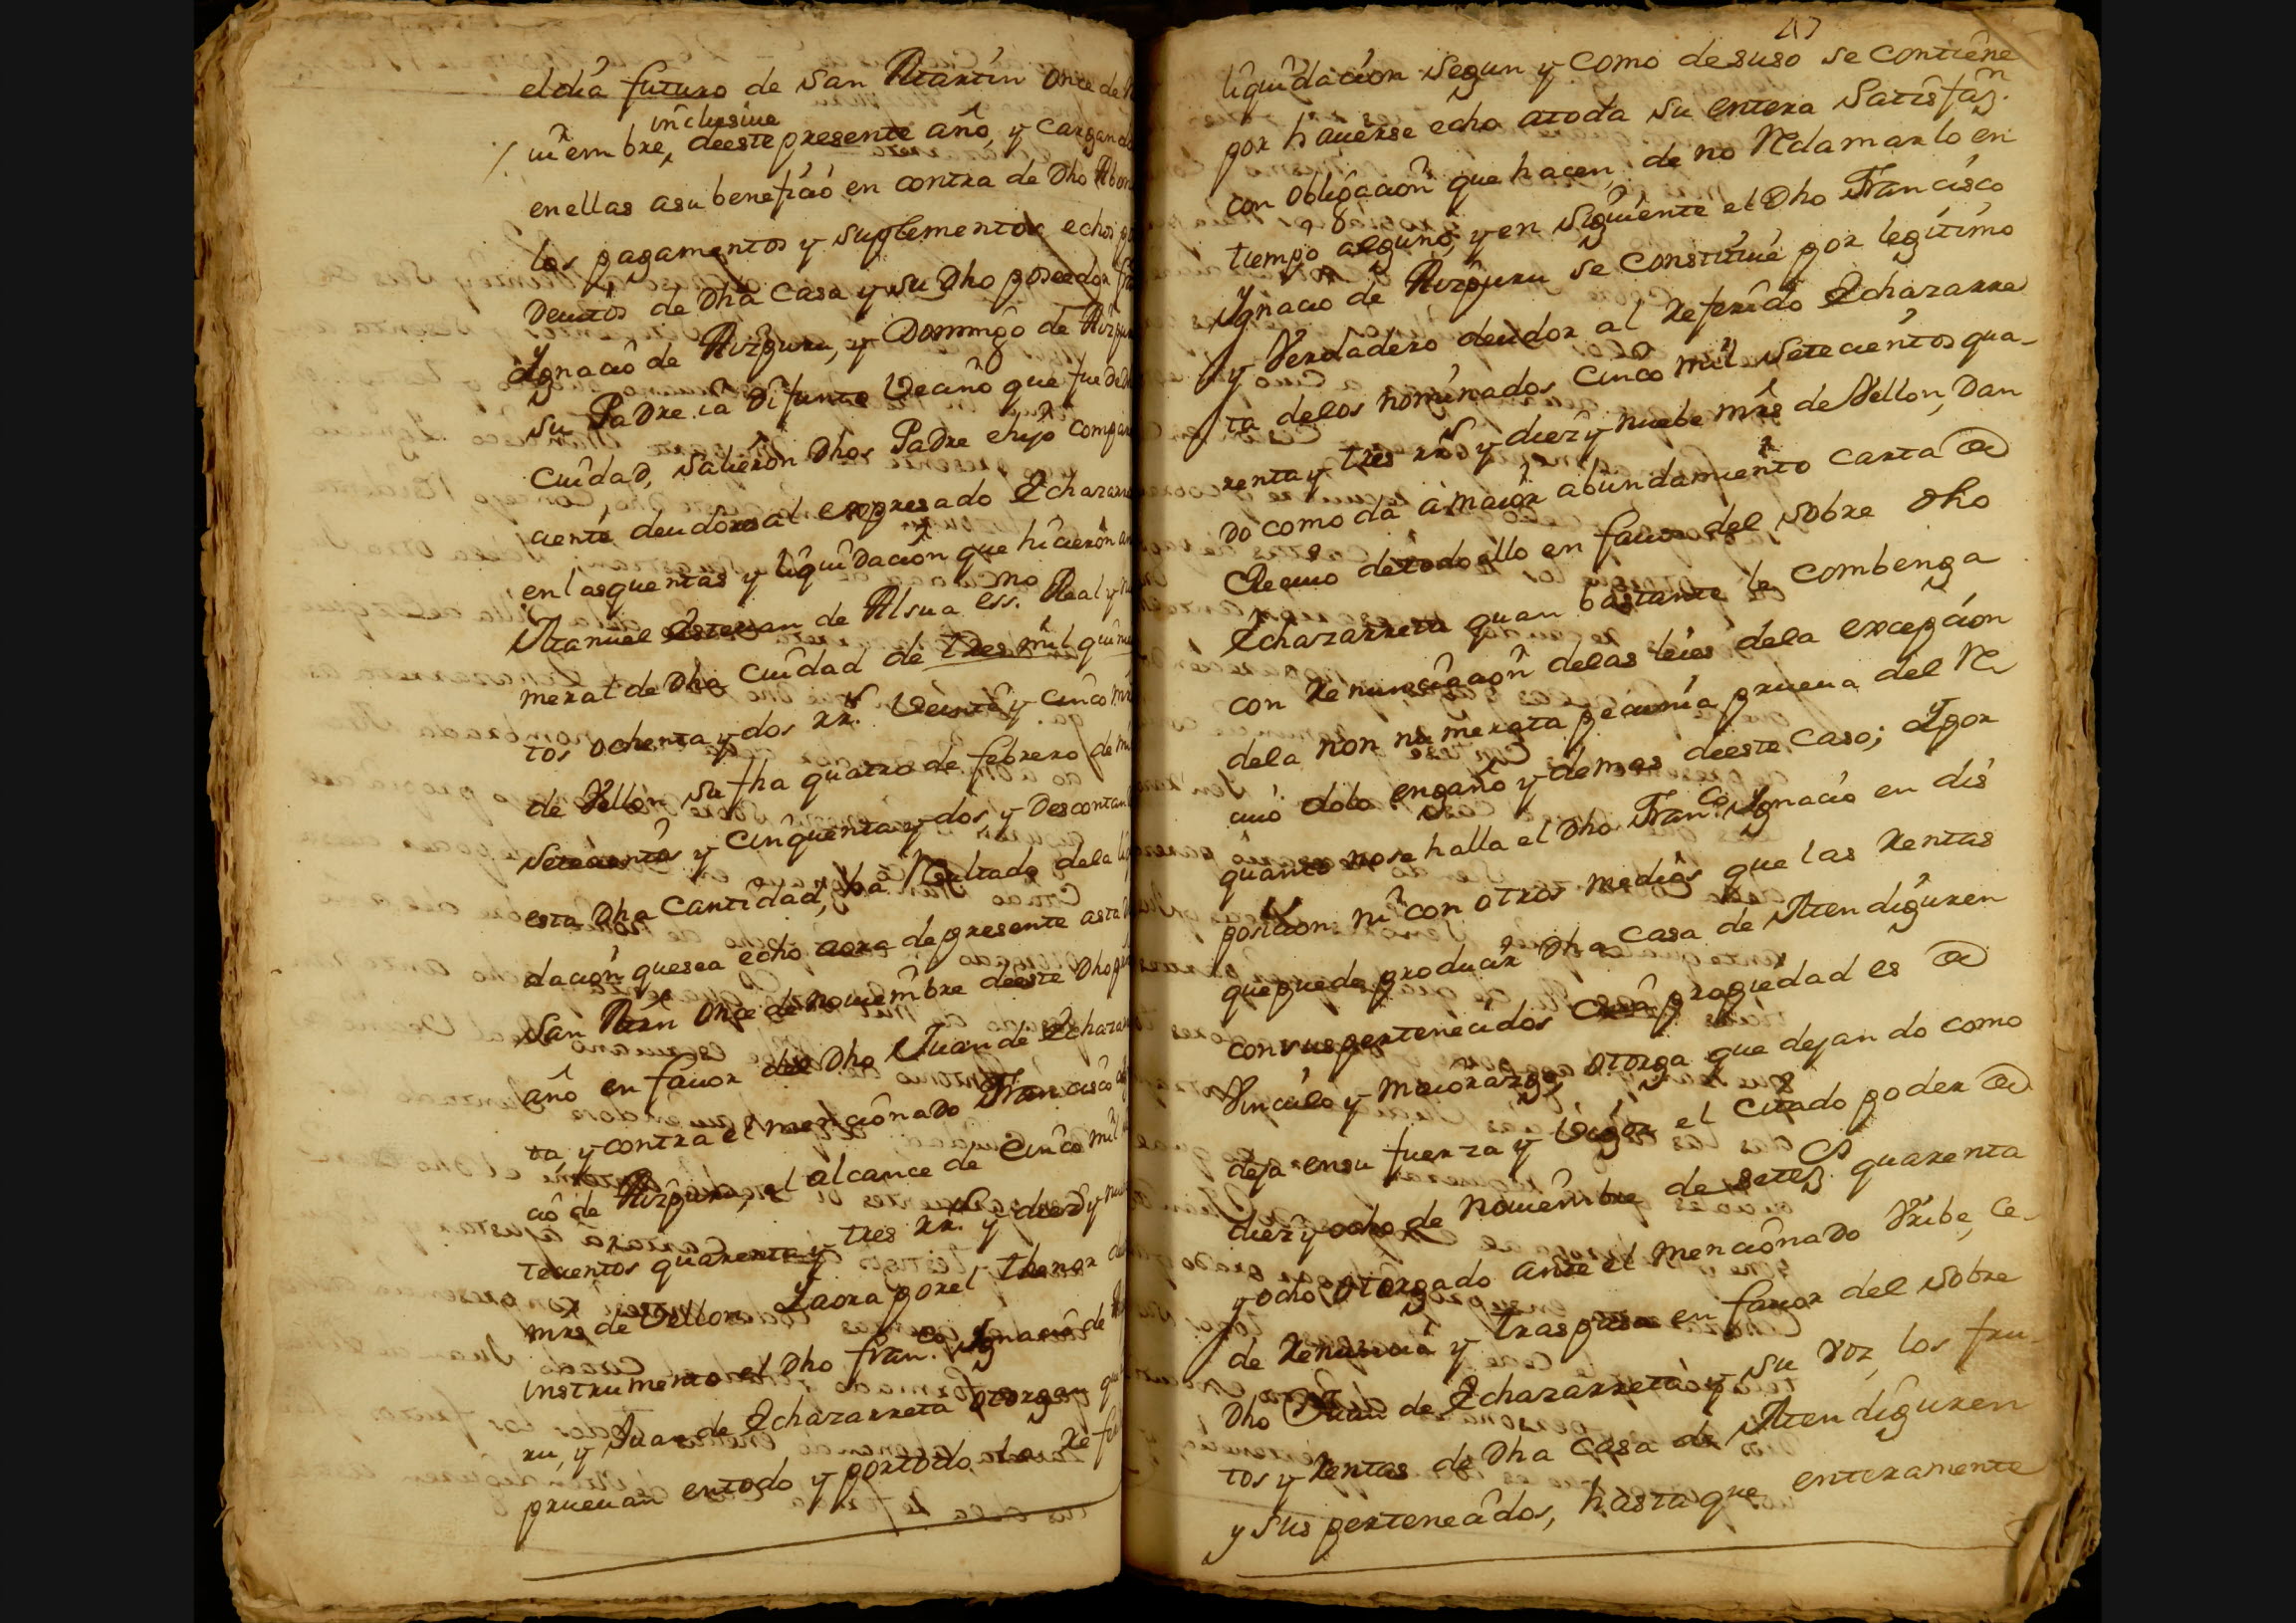 el dia futuro de San Martin Once de N
inclusiue
uiembre, deeste presente año, y cargando
enellas asu beneficio en contra de Dho Abon
los pagamentos y suplementos echos p
Deuitos de Dha Casa y su Dho poseedor Fra
Ygnacio de Aizpuru, y Domingo de Aizpuru
su Padre ia Difunto Vecino que fue deDha
Ciudad, Salieron Dhos Padre ehijo compar
ciente deudores al expresado Echazarre
enlasquentas y liquidacion que hicieron an
Manuel Esteuan de Alsua ess.no Real y nu
meral de Dha Ciudad de tres mil quinien
tos ochenta y dos rr.s Veinte y cinco mrs
de Vellon su fha quatro de febrero de mil
Setecientos y Cinquenta y dos, y Descontan
esta Dha Cantidad, ha Resultado dela liqui
dacion quesea echo aora depresente asta D
San Mrn Once de Nouiembre deeste Dho pre
año en fauor del Dho Juan de Echazarre
ta y contra el mencionado Francisco Ygn
cio de Aizpuru, el alcance de Cinco mil se
tecientos quarenta y tres rr.s y diez y nuebe
mrs de Vellon. Yaora porel thenor de
instrumento el Dho Fran.co Ygnacio de Aizpu
ru, y Juan de Echazarreta otorgan que
prueuan entodo y portodo, la Refe
liquidacion Segun y como desuso se contiene
por hauerse echo atoda su entera Satisfaz.n
con obligacion que hacen, de no Reclamarlo en
tiempo alguno, y en Siguiente el Dho Francisco
Ygnacio de Aizpuru se constituie por legitimo
y Verdadero deudor al referido Echazarre
ta delos nominados Cinco mil Setecientos qua-
renta y tres rr.s y diez y nuebe mrs de Vellon, Dan
do como da a maior abundamiento carta de
Reciuo detodo ello en fauor del sobre Dho
Echazarreta quan bastante le combenga
con Renunciacion delas leies dela excepcion
dela non numerata pecunia prueua del Re
ciuo dolo engaño y demas deeste caso; Ypor
quanto nose halla el Dho Fran.co Ygnacio en dis
posicion ni con otros medios que las Rentas
quepuede producir Dha Casa de Mendiguren
consuspertenecidos Cuia propiedad es de
Vinculo y maiorazgo, otorga que dejando como
deja ensu fuerza y Vigor el Citado poder de
diez y ocho de Nouiembre de setez.s quarenta
y ocho, otorgado ante el mencionado Vribe, Ce-
de Renuncia y traspasa en fauor del Sobre
Dho Juan de Echazarreta y su voz los fru-
tos y Rentas de Dha Casa de Mendiguren
y sus pertenecidos, hasta que enteramente